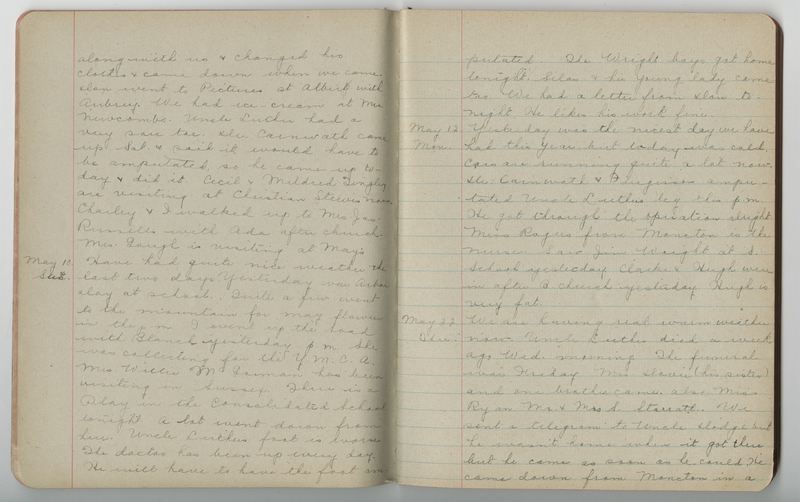 along with us & changed his
clothes & came down when we came.
Alan went to Pictures at Albert with
Aubrey. We had ice-cream at Mrs
Newcombs. Uncle Luther had a
very sore toe. Dr. Carnwath came
up Sat. & said it would have to
be amputated, so he came up to-
day & did it. Cecil & Mildred Tingley
are visiting at Christian Steeves now.
Charley & I walked up to Mrs Jas.
Russells with Ada after church.
Mrs. Gough is visiting at May's
May 10 Have had quite nice weather the
Sat. last two days. Yesterday was Arbor
day at school. Quite a few went
to the mountain for may flowers
in the p.m. I went up the road
with Blanch yesterday p.m. She
was collecting for the Y.M.C.A.
Mrs. Willie McGorman has been
visiting in Sussex. There is a
Play in the Consolidated School
tonight. A lot went down from
here. Uncle Luthers foot is worse
The doctor has been up every day.
He will have to have the foot am-
putated. The Wright boys got home
tonight. Silas & his young lady came
too. We had a letter from Alan to-
night. He likes his work fine.
May 12 Yesterday was the nicest day we have
Mon. had this year but to-day was cold.
Cars are running quite a lot now.
Dr. Carnwath & Ferguson ampu-
tated Uncle Luthers leg this p.m.
He got through the operation alright
Miss Rogers from Moncton is the
nurse. Saw Jim Wright at S.
School yesterday. Clarke & Hugh were
in after church yesterday. Hugh is
very fat.
May 22 We are having real warm weather
Thur. now. Uncle Luther died a week
ago Wed. morning. The funeral
was Friday. Mrs (his sister)
and one brother came. also Miss
Ryan Mr. & Mrs S. Starratt. We
sent a telegram to Uncle Hodge but
he wasn't home when it got there
but he came as soon as he could. He
came down from Moncton in a